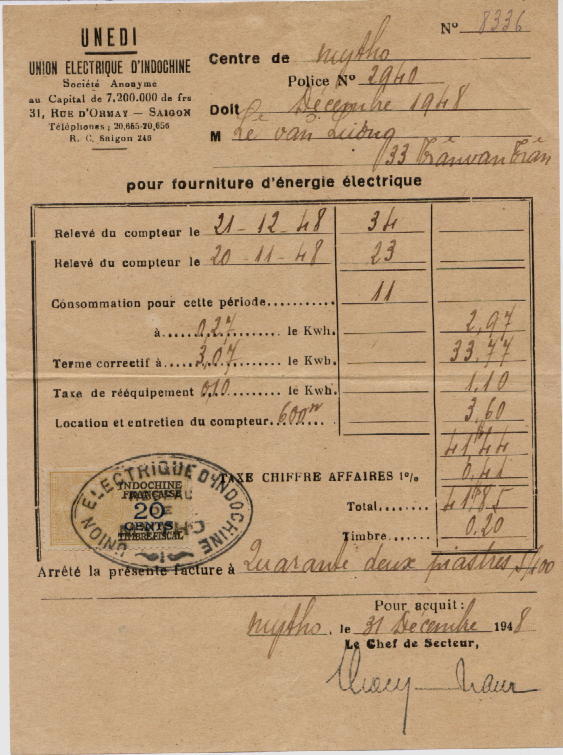 UNEDI
UNION ELECTRIQUE D'INDOCHINE
Société Anonyme
au Capital de 7.200.000 de frs
31, RUE D'ORMAY — SAIGON
Téléphones : 20,655-20,656
R. C. Saigon 246
N° 8336
Centre de Mytho
Police N° 2940
Doit Décembre 1948
M Lê van Luong
33 Trân van Trân
pour fourniture d'énergie électrique
Relevé du compteur le 21-12-48 34
Relevé du compteur le 20-11-48 23
Consommation pour cette période........... 11
à......0,27............ le Kwh. 2,97
Terme correctif à....3,07........ le Kwh. 33,77
Taxe de rééquipement 0,10 le Kwh. 1,10
Location et entretien du compteur..600w.... 3,60
41,44
TAXE CHIFFRE AFFAIRES 1% 0,41
Total....... 41,85
Timbre...... 0,20
UNION ELECTRIQUE D'INDOCHINE
INDOCHINE
FRANÇAISE
20
CENTS
TIMBRE FISCAL
Arrêté la présente facture à Quarante deux piastres 5/100
Pour acquit :
Mytho, le 31 Décembre 1948
Le Chef de Secteur,